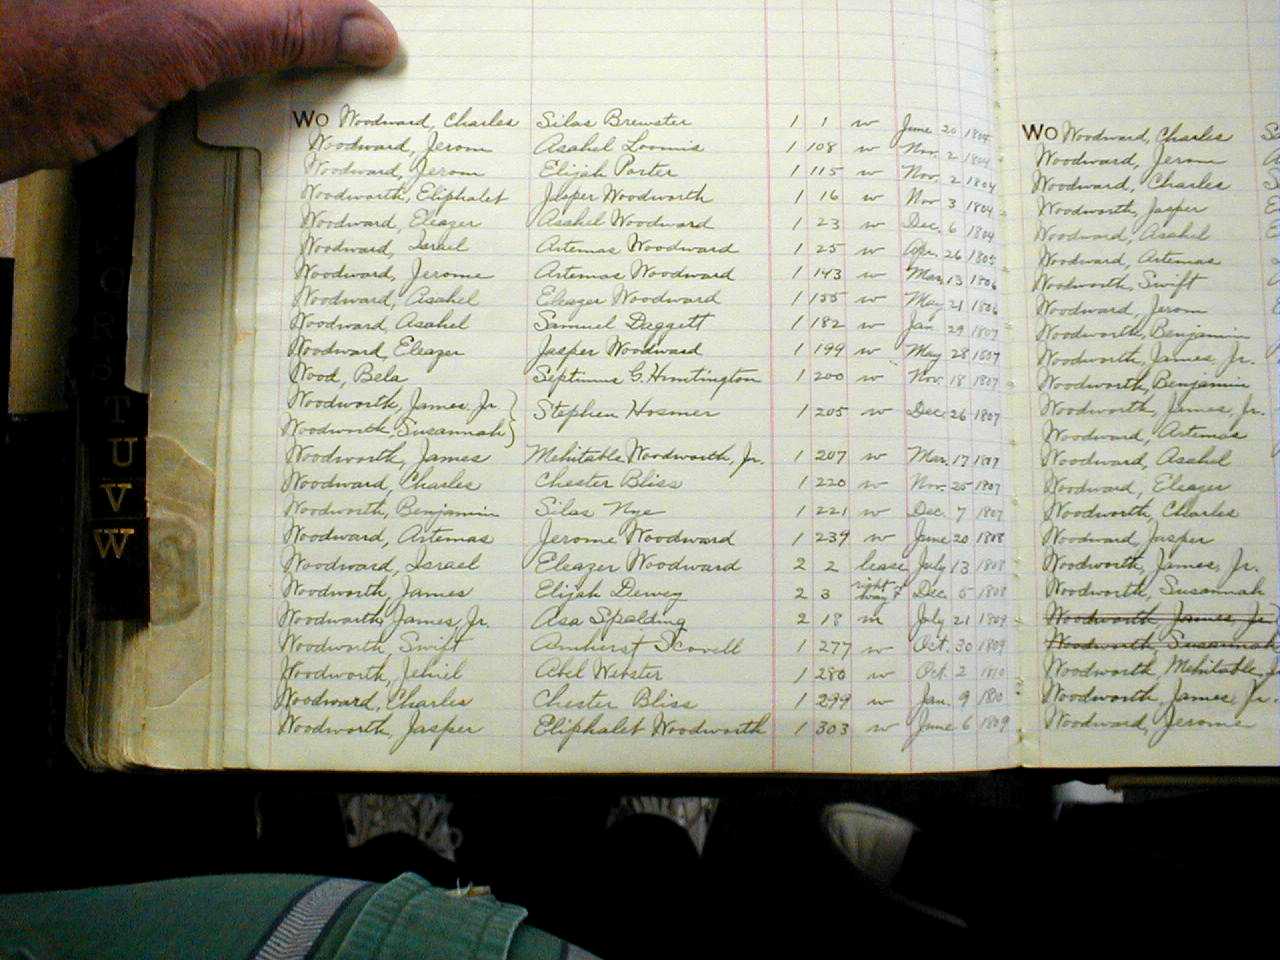 WO Woodward, Charles Silas Brewster 1 1 w June 20 1804
Woodward, Jerom Asahel Loomis 1 108 w Nov. 2 1804
Woodward, Jerom Elijah Porter 1 115 w Nov. 2 1804
Woodworth, Eliphalet Jasper Woodworth 1 16 w Nov 3 1804
Woodward, Eleazer Asahel Woodward 1 23 w Dec. 6 1804
Woodward, Israel Artemas Woodward 1 25 w Apr. 26 1805
Woodward, Jerome Artemas Woodward 1 143 w Mar. 13 1806
Woodward, Asahel Eleazer Woodward 1 155 w May 21 1806
Woodward, Asahel Samuel Daggett 1 182 w Jan. 29 1807
Woodward, Eleazer Jasper Woodward 1 199 w May 28 1807
Wood, Bela Septimus G. Huntington 1 200 w Nov. 18 1807
Woodworth, James, Jr. } Stephen Hosmer 1 205 w Dec. 26 1807
Woodworth, Susannah }
Woodworth, James Mehitable Woodworth, Jr. 1 207 w Mar. 17 1807
Woodward, Charles Chester Bliss 1 220 w Nov. 25 1807
Woodworth, Benjamin Silas Nye 1 221 w Dec. 7 1807
Woodward, Artemas Jerome Woodward 1 239 w June 20 1808
Woodward, Israel Eleazer Woodward 2 2 lease July 13 1808
Woodworth, James Elijah Dewey 2 3 right way Dec. 5 1808
Woodworth, James, Jr. Asa Spalding 2 18 m July 21 1809
Woodworth, Swift Amherst Scovell 1 277 w Oct. 30 1809
Woodworth, Jehiel Abel Webster 1 280 w Oct. 2 1810
Woodward, Charles Chester Bliss 1 299 w Jan. 9 1810
Woodworth, Jasper Eliphalet Woodworth 1 303 w June 6 1809
WO Woodward, Charles
Woodward, Jerom
Woodward, Charles
Woodworth, Jasper
Woodward, Asahel
Woodward, Artemas
Woodworth, Swift
Woodward, Jerom
Woodworth, Benjamin
Woodworth, James, Jr.
Woodworth Benjamin
Woodworth, James, Jr.
Woodward, Artemas
Woodward, Asahel
Woodward, Eleazer
Woodworth, Charles
Woodward, Jasper
Woodworth, James, Jr.
Woodworth, Susannah
Woodworth James, Jr.
Woodworth, Susannah
Woodworth, Mehitable,
Woodworth, James, Jr.
Woodward, Jerome
O
R
S
T
U
V
W